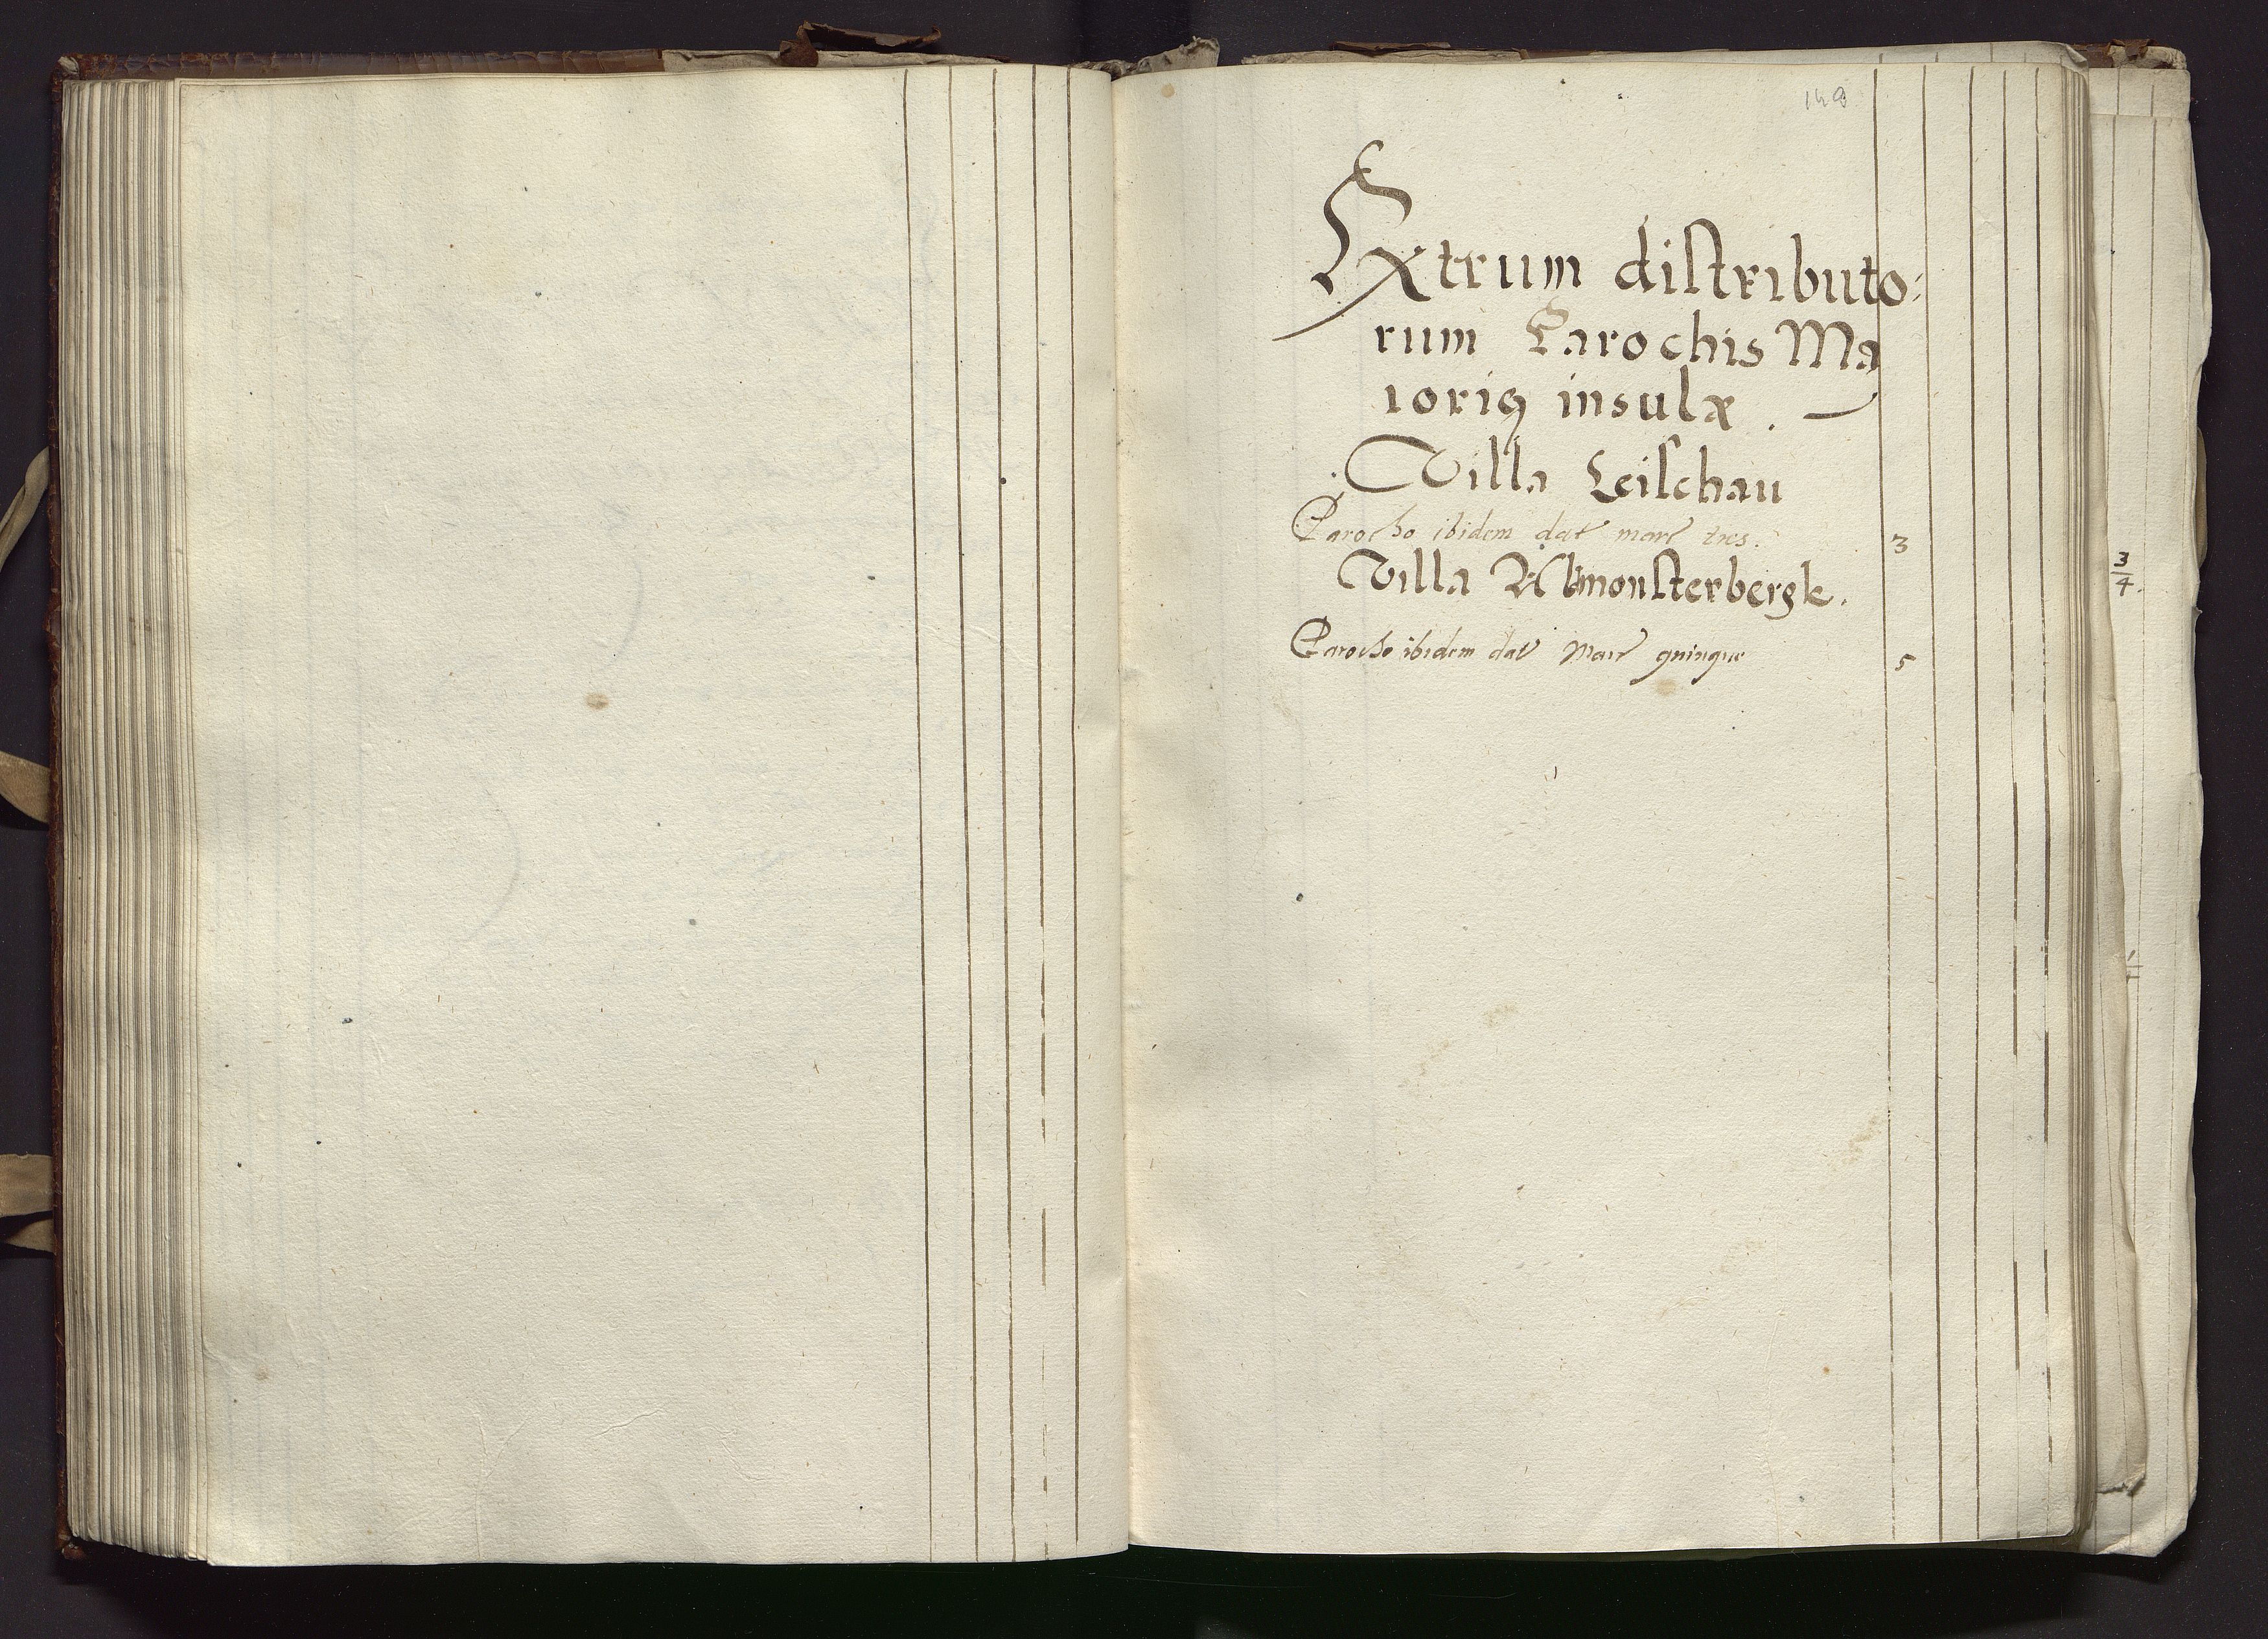 149
Extrum distributo:
rum Parochis Ma
ioris insulæ.
Villa Leischau
Parocho ibidem dat marc tres. 3
Villa Altmonsterbergk.
Parocho ibidem dat Marc quinque 5
3/4.